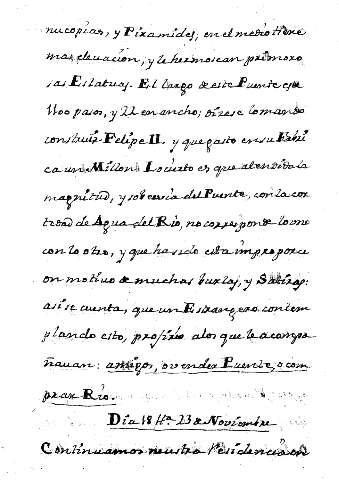 nucopias, y Piramides; en el medio tiene
mas elevacion, y le hermosean primoro
sas Estatuas. El largo de este Puente es de
1100 pasos, y 22 en ancho; dizese lo mandó
construir Felipe II. y que gasto en su Fabri
ca un Millon: Lo cierto es que atendida la
magnitud, y sobervia del Puente, con la cor
tedad de Agua del Rio, no corresponde lo uno
con lo otro, y que ha sido esta improporci
on motivo de muchas burlas, y Satiras:
asi se cuenta, que un Estrangero contem
plando esto, profirio a los que le acompa
ñavan: amigos, o vender Puente, o com
prar Rio.
Dia 18 Hta. 23 de Noviembre
Continuamos nuestra Residencia en